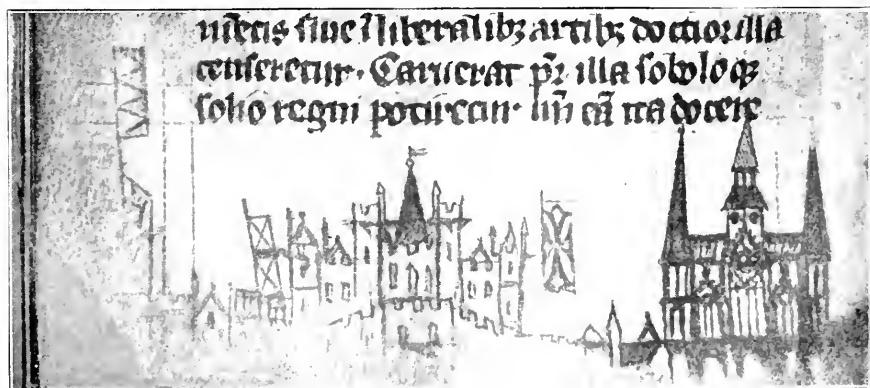 mētis siue ī liberalibꝫ artibꝫ doctior illa
censeretur. Caruerat pr̄ illa sobole q̄
solio regni potiretur. un̄ eā ita docere